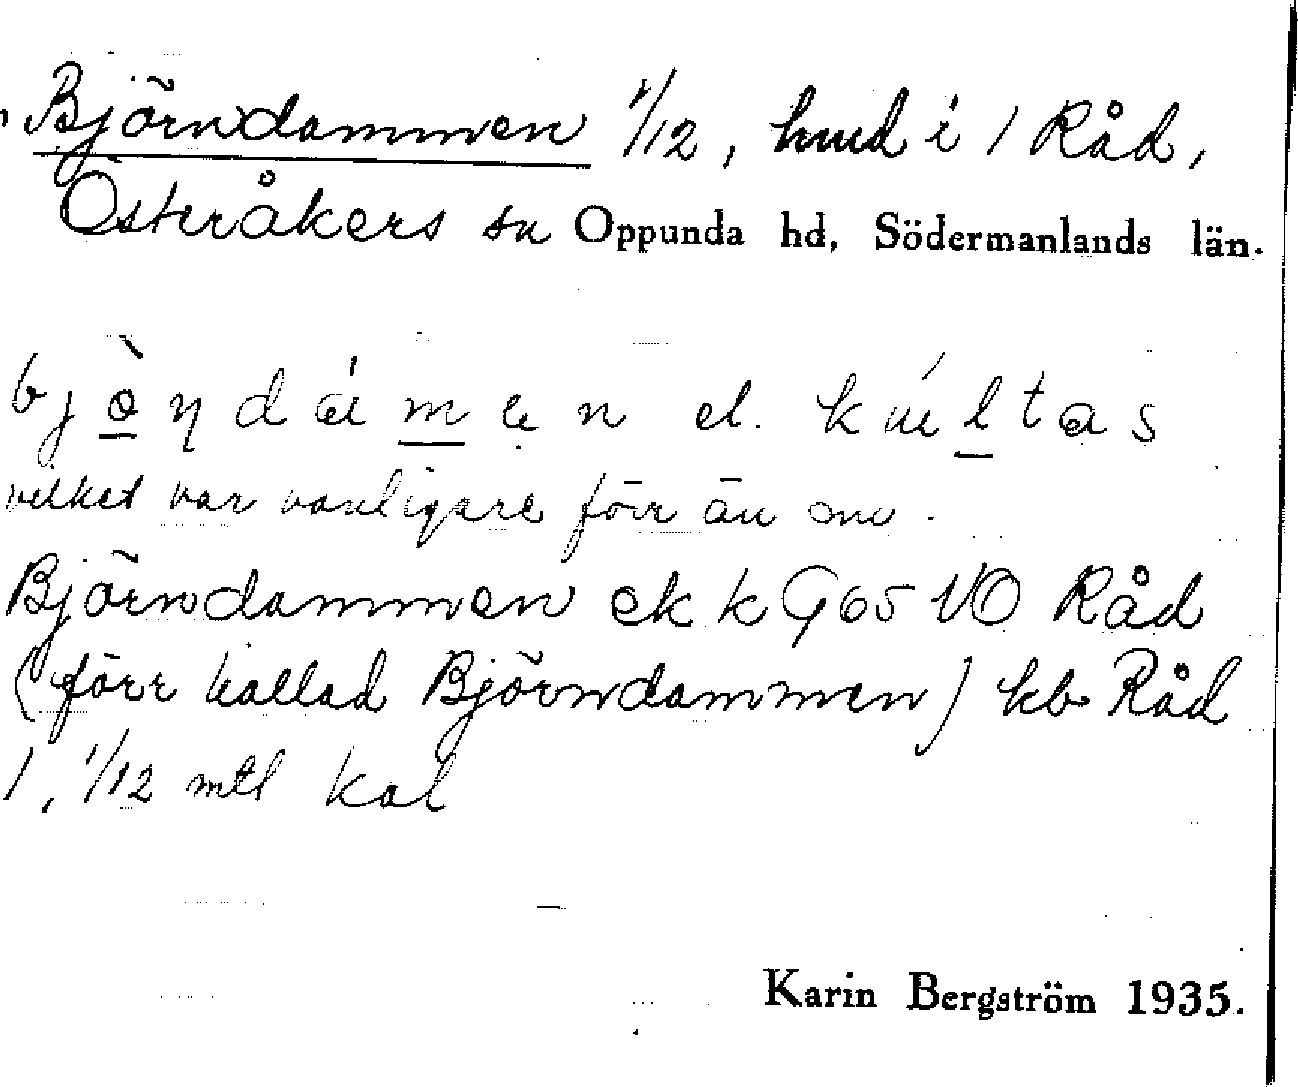 Björndammen 1/12, hmd i 1 Råd,
Österåkers sn Oppunda hd, Södermanlands län.
el.
vilket var vanligare förr än nu.
Björndammen ek k G65 VO Råd
(förr kallad Björndammen) kb Råd
1, 1/12 mtl kal
Karin Bergström 1935.